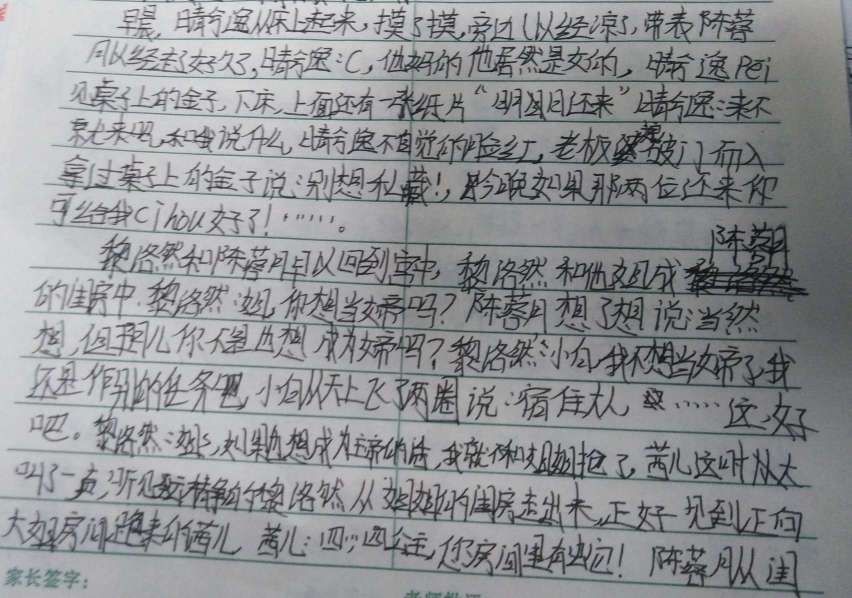 早晨,晴兮逸从床上起来,摸了摸,旁边以经凉了,带表陈蓉
月以经走了好久了,晴兮逸:C,他妈的他居然是女的,晴兮逸Pei
见桌子上的金子,下床,上面还有一张纸片“明日还来”晴兮逸:来不
来就来吧,和我说什么,晴兮逸不自觉的脸红,老板破门而入
拿过桌子上的金子说:别想私藏!,今晚如果那两位还来你
可给我Cihou好了!……。
黎洛然和陈蓉月以回到宫中,黎洛然和他姐成陈蓉月
的闺房中.黎洛然:姐,你想当女帝吗?陈蓉月想了想说:当然
想,但 儿你不是也想成为女帝吗?黎洛然:小白,我不想当女帝了,我
还是作别的任务吧,小白从天上飞了两圈说:宿住大人,……这,好
吧。黎洛然:姐,如果你想成为女帝的话,我就不和姐姐抢了,茜儿这时从大
叫了一声,听见 黎洛然从姐姐的闺房走出来,正好见到正向
大姐房间跑来的茜儿 茜儿:四:四公主,你房间里有 !陈蓉月从闺
家长签字: